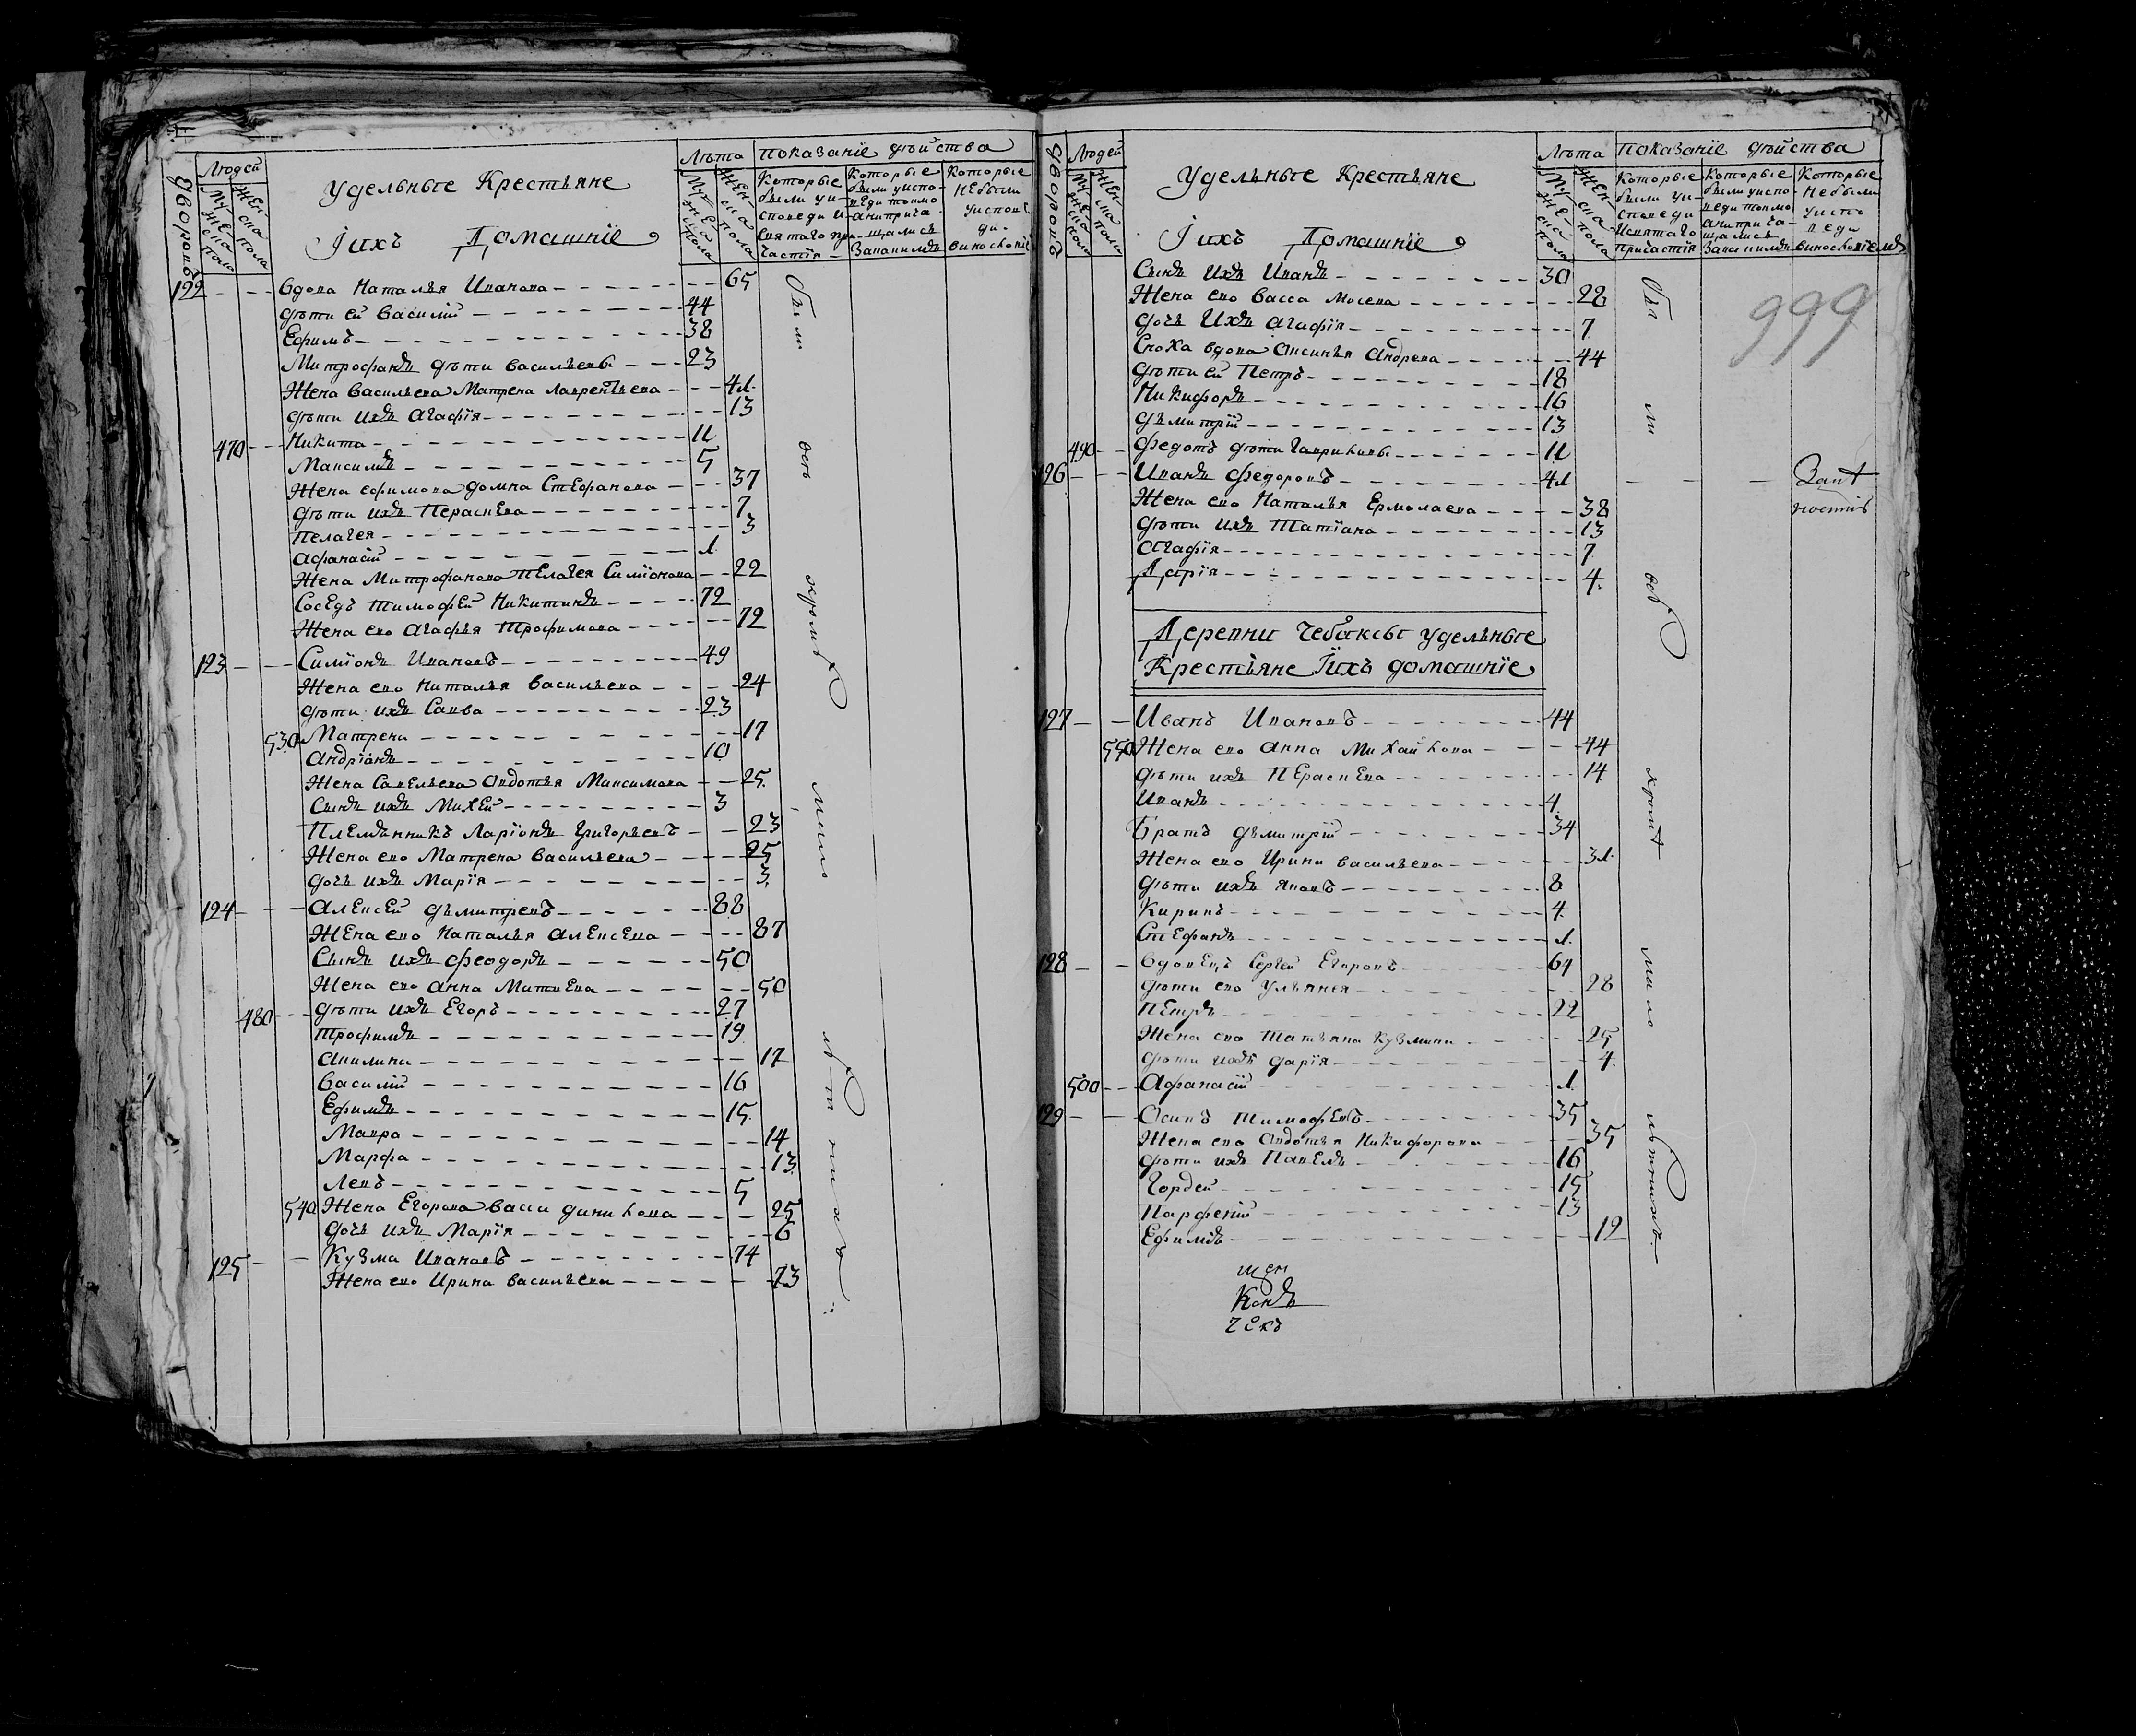 Дворовъ
Людей
Мужеска пола
Женска пола
Удельныее Крестьяне
Iихъ Домашнїе
Лѣта
Мужеска пола
Женска пола
показанїе дѣйства
Которые были уи-
споведи и
святаго при-
частiя
Которые были уиспо-
веди токмо
анприча-
щались
Заканимъ
Которые
Небыли
уиспове
ди
122 Вдова Наталья Иванова 65
дѣти ей Василiй 44
Ефимъ 38
Митрофанъ дѣти васильевы 23
Жена васильева Матрена Лаврентьева 41
дѣти ихъ Агафїя 13
470 Никита 11
Максимъ 5
Жена ефимова домна Стефанова 37
дѣти ихъ Пераскева 7
Пелагея 3
Афанасiй 1
Жена Митрофанова Пелагея Симiонова 22
Соседъ Тимофей Никитинъ 72
Жена ево Агафья Трофимова 72
123 Симiонъ Ивановъ 49
Жена ево Наталья васильева 24
дѣти ихъ Савва 23
530 Матрена 17
Андрїанъ 10
Жена Савельева Овдотья Максимова 25
Сынъ ихъ Михей 3
Племянникъ Ларїонъ Григорьевъ 23
Жена ево Матрена васильева 25
дочь ихъ Марїя 3
124 Алексей дьмитревъ 88
Жена ево Наталья Алексева 87
Сынъ ихъ Феодоръ 50
Жена ево Анна Матвева 50
480 дѣти ихъ Егоръ 27
Трофимъ 19
Акилина 17
василiй 16
Ефимъ 15
Мавра 14
Марфа 13
Левъ 5
540 Жена Егорова васса данилова 25
дочь ихъ Марїя 6
125 Кузма Ивановъ 74
Жена ево Ирина васильева 73
были
всѣ
кромѣ
мало
лѣтнихъ
Дворовъ
Людей
Мужеска пола
Женска пола
Удельныее Крестьяне
Iихъ Домашнїе
Лѣта
Мужеска пола
Женска пола
показанїе дѣйства
Которые
были уи-
споведи
Исвятаго
Причастiя
Которые
были уиспо-
веди токмо
анприча-
щались
Заканимъ
Которые
Небыли
уиспо
веди
999
Сынъ Ихъ Иванъ 30
Жена ево васса Мосева 28
дочь Ихъ Агафїя 7
Сноха вдова Оксинья Андрева 44
дѣти ей Петръ 18
Никифоръ 16
дьмитрiй 13
490 Федотъ дѣти Гавриловы 11
126 Иванъ Федоровъ 41
Жена ево Наталья Ермолаева 38
дѣти ихъ Татїана 13
Агафїя 7
Дарїя 4
Деревни Чебаксы удельныее
Крестьяне Iихъ домашнїе
127 Иванъ Ивановъ 44
550 Жена ево Анна Михайлова 44
дѣти ихъ Пераскева 14
Иванъ 4
Братъ дьмитрiй 34
Жена ево Ирина васильева 31
дѣти ихъ Яковъ 8
Кирилъ 4
Стефанъ 1
128 Вдовецъ Сергей Егоровъ 64
дѣти ево Ульянея 28
Петръ 22
Жена ево Татьяна Кузмина 25
дѣти ихъ дарїя 4
500 Афанасiй 1
129 Осипъ Тимофеевъ 35
Жена ево Овдотья Никифорова 35
дѣти ихъ Павелъ 16
Гордей 15
Парфенiй 13
Ефимъ 12
бы
ли
всѣ
кромѣ
мало
лѣтнихъ